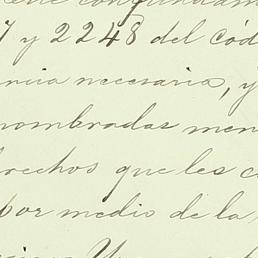 7 y 2248 del cód
ncia necesaria, y
nombradas men
rechos que les c
por medio de la